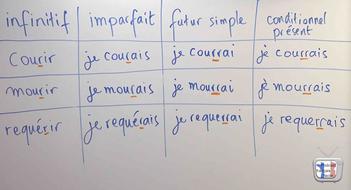 infinitif imparfait futur simple conditionnel
présent
courir je courais je courrai je courrais
mourir je mourais je mourrai je mourrais
requérir je requérais je requerrai je requerrais